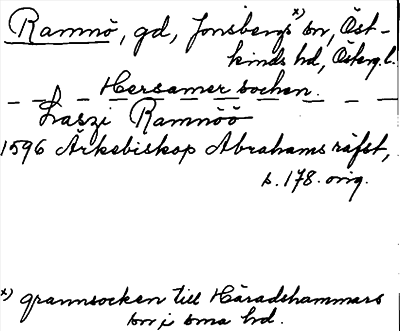 Ramnö, gd, Jonsbergs x) sn, Öst-
kinds hd, Österg.l.
Hersamer sochen.
Laszi Ramnöö
1596 Ärkebiskop Abrahams räfst,
s. 178. orig.
x) grannsocken till Häradshammars
sn i sma hd.